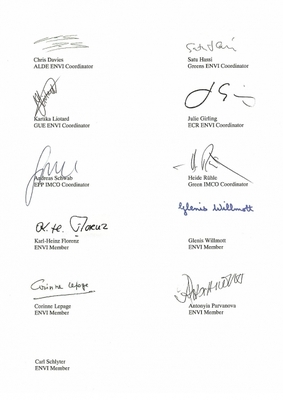 Chris Davies
ALDE ENVI Coordinator
Satu Hassi
Greens ENVI Coordinator
Kartika Liotard
GUE ENVI Coordinator
Julie Girling
ECR ENVI Coordinator
Andreas Schwab
EPP IMCO Coordinator
Heide Rühle
Green IMCO Coordinator
K.-H. Florenz
Karl-Heinz Florenz
ENVI Member
Glenis Willmott
Glenis Willmott
ENVI Member
Corinne Lepage
Corinne Lepage
ENVI Member
Antonyia Parvanova
ENVI Member
Carl Schlyter
ENVI Member